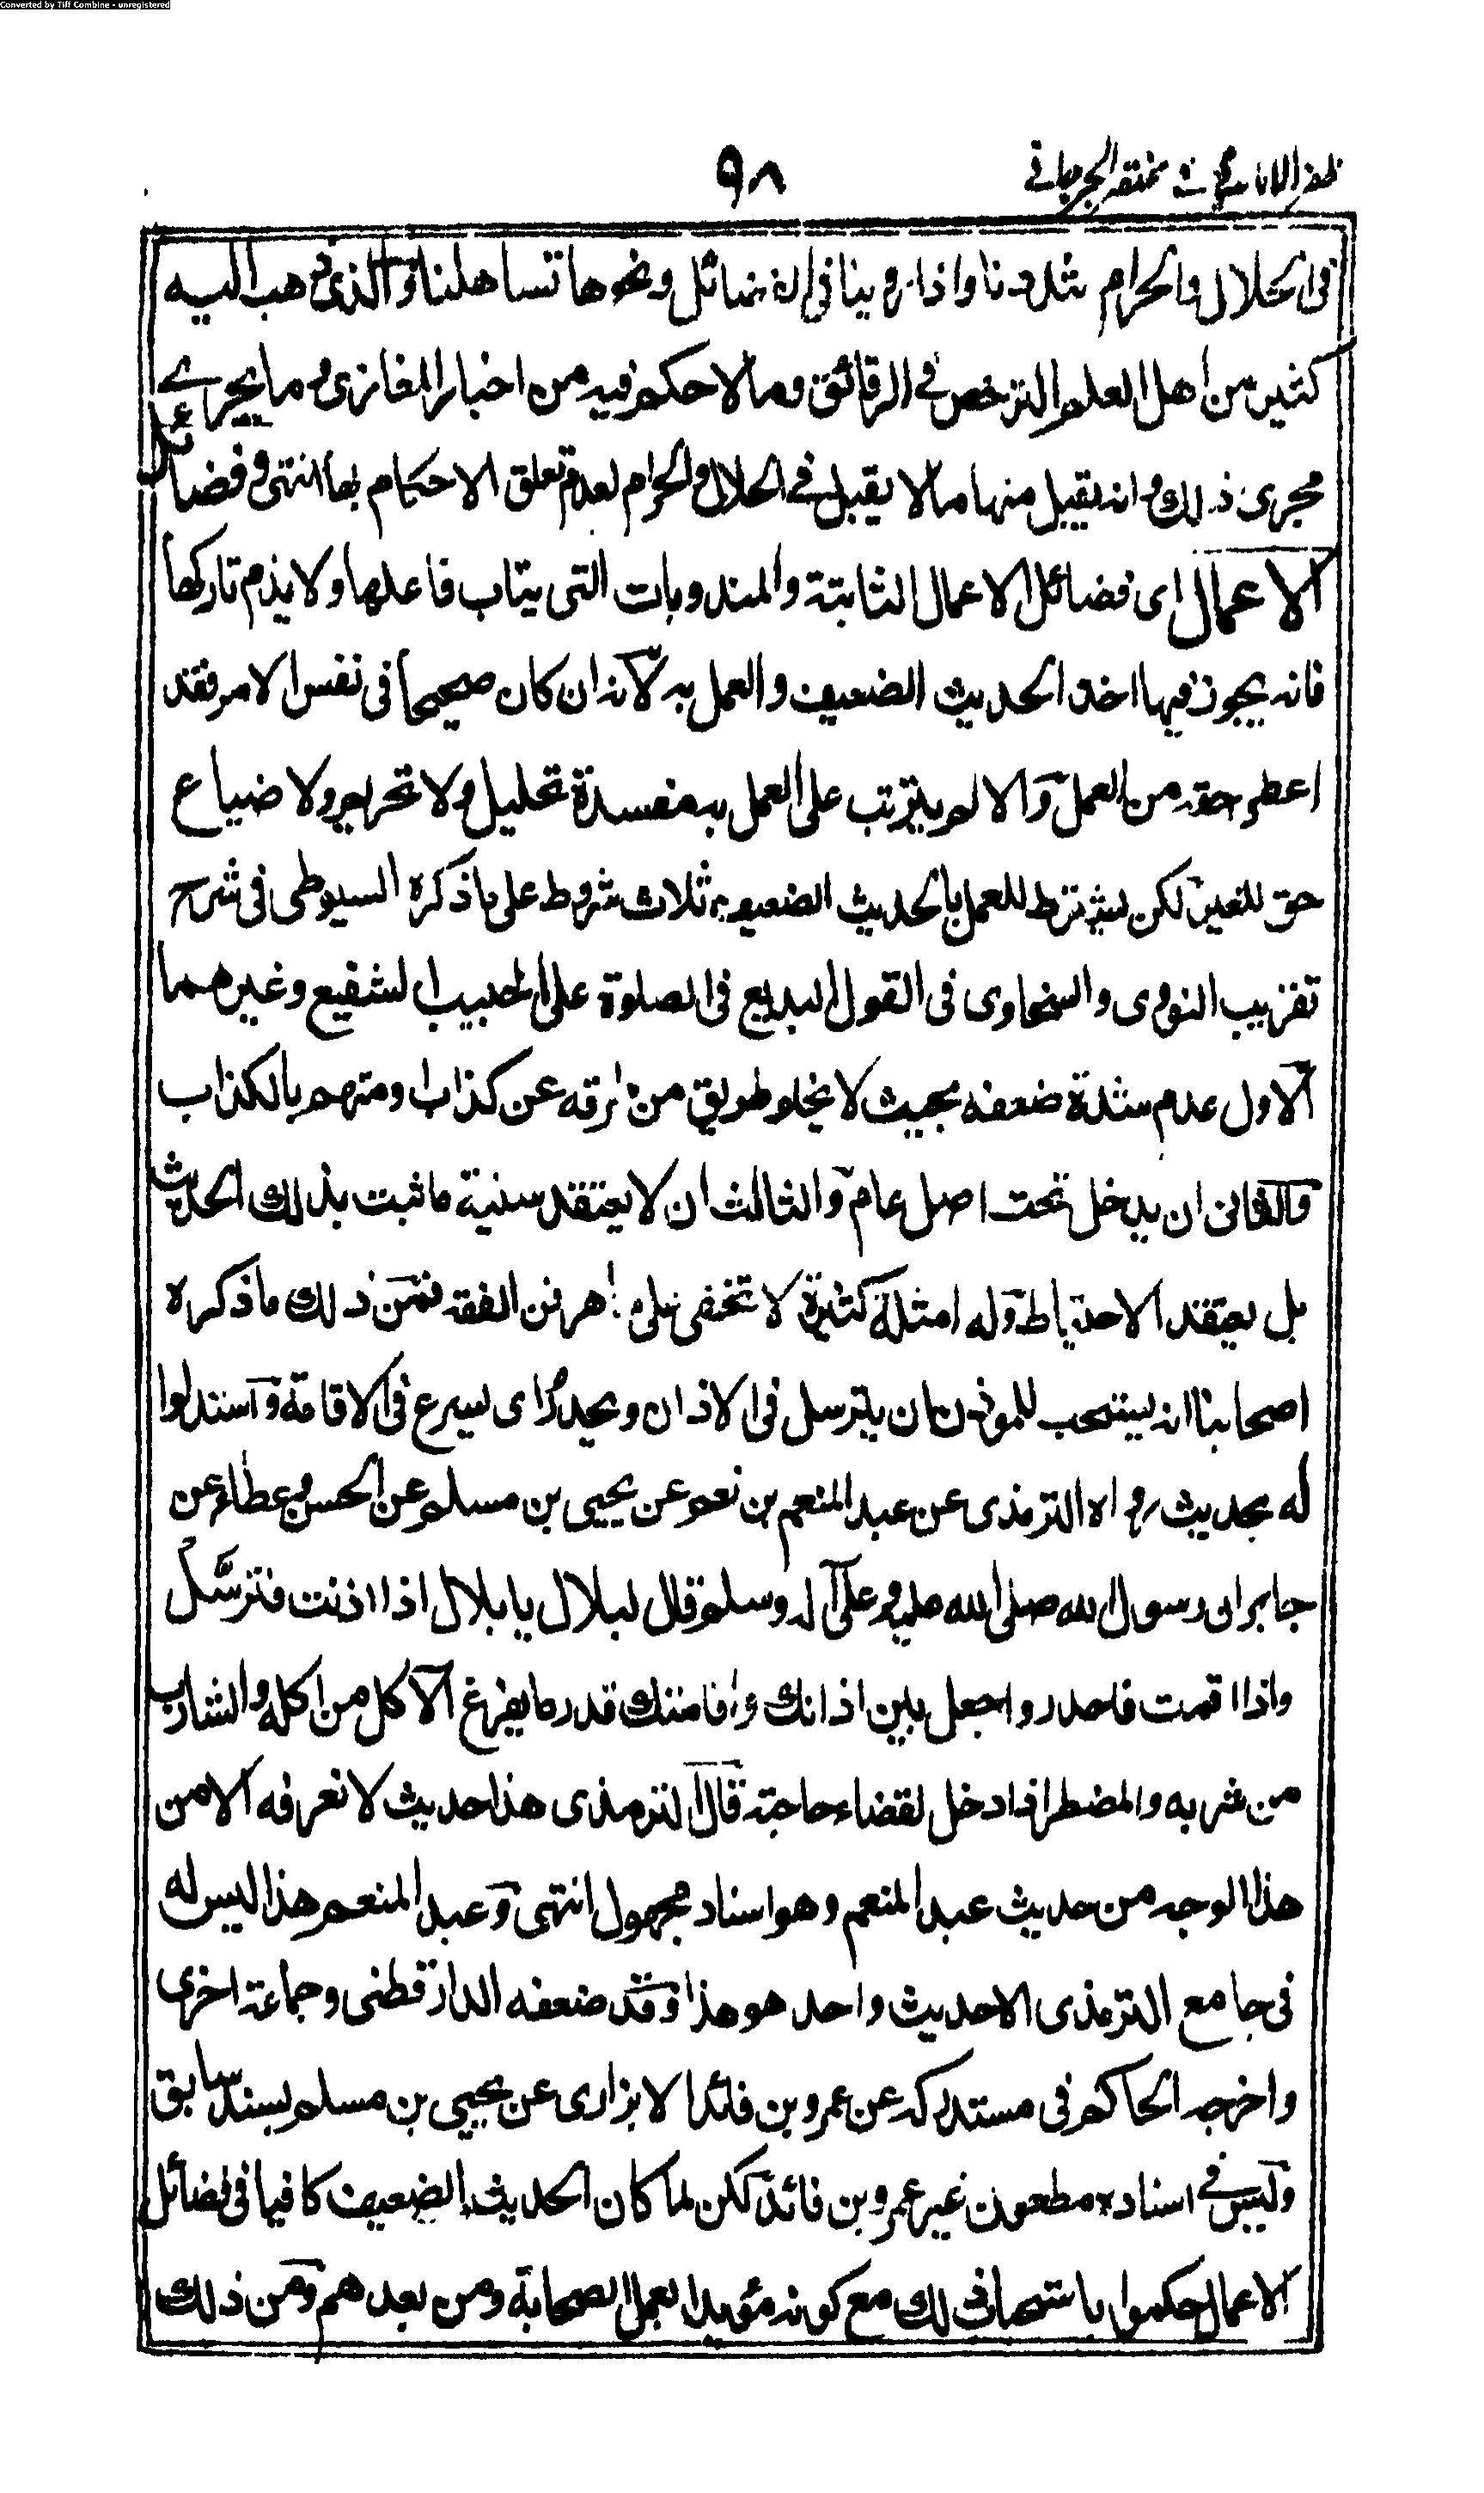 Converted by Tiff Combine - unregistered
ظفر الامانی فی مختصر الجرجانی
٩٨
فی الحلال والحرام شددنا واذا روینا فی الفضائل ونحوها تساهلنا والذی ذهب الیه
کثیر من اهل العلم الترخص فی الرقائق وما لا حکم فیه من اخبار المغازی وما یجری
مجری ذلک وانه یقبل منها ما لا یقبل فی الحلال والحرام لعدم تعلق الاحکام بها انتهی وفضائل
الاعمال ای فضائل الاعمال الثابتة والمندوبات التی یثاب فاعلها ولا یذم تارکها
فانه یجوز فیها اخذ الحدیث الضعیف والعمل به لانه ان کان صحیحا فی نفس الامر فقد
اعطی حقه من العمل والا لم یترتب علی العمل به مفسدة تحلیل ولا تحریم ولا ضیاع
حق للغیر لکن یشترط للعمل بالحدیث الضعیف ثلاث شروط علی ما ذکره السیوطی فی شرح
تقریب النووی والسخاوی فی القول البدیع فی الصلوة علی الحبیب الشفیع وغیرهما
الاول عدم شدة ضعفه بحیث لا یخلو طریق من طرقه عن کذاب او متهم بالکذاب
والثانی ان یدخل تحت اصل عام والثالث ان لا یعتقد سنیة ما ثبت بذلک الحدیث
بل یعتقد الاحتیاط وله امثلة کثیرة لا تخفی علی ماهر فن الفقه فمن ذلک ما ذکره
اصحابنا انه یستحب للموذن ان یترسل فی الاذان ویحدر ای یسرع فی الاقامة واستدلوا
له بحدیث رواه الترمذی عن عبد المنعم بن نعیم عن یحیی بن مسلم عن الحسن وعطاء عن
جابر ان رسول الله صلی الله علیه وعلی آله وسلم قال لبلال یا بلال اذا اذنت فترسل
واذا اقمت فاحدر واجعل بین اذانک واقامتک قدر ما یفرغ الآکل من اکله والشارب
من شربه والمضطر اذا دخل لقضاء حاجته قال الترمذی هذا حدیث لا نعرفه الا من
هذا الوجه من حدیث عبد المنعم وهو اسناد مجهول انتهی وعبد المنعم هذا لیس له
فی جامع الترمذی الا حدیث واحد هو هذا وقد ضعفه الدارقطنی وجماعة اخری
واخرجه الحاکم فی مستدرکه عن عمرو بن فائد الابزاری عن یحیی بن مسلم بسند سابق
ولیس فی اسناده مطعون غیر عمرو بن فائد لکن لما کان الحدیث الضعیف کافیا فی فضائل
الاعمال حکموا باستحباب ذلک مع کونه مؤیدا بعمل الصحابة ومن بعدهم ومن ذلک